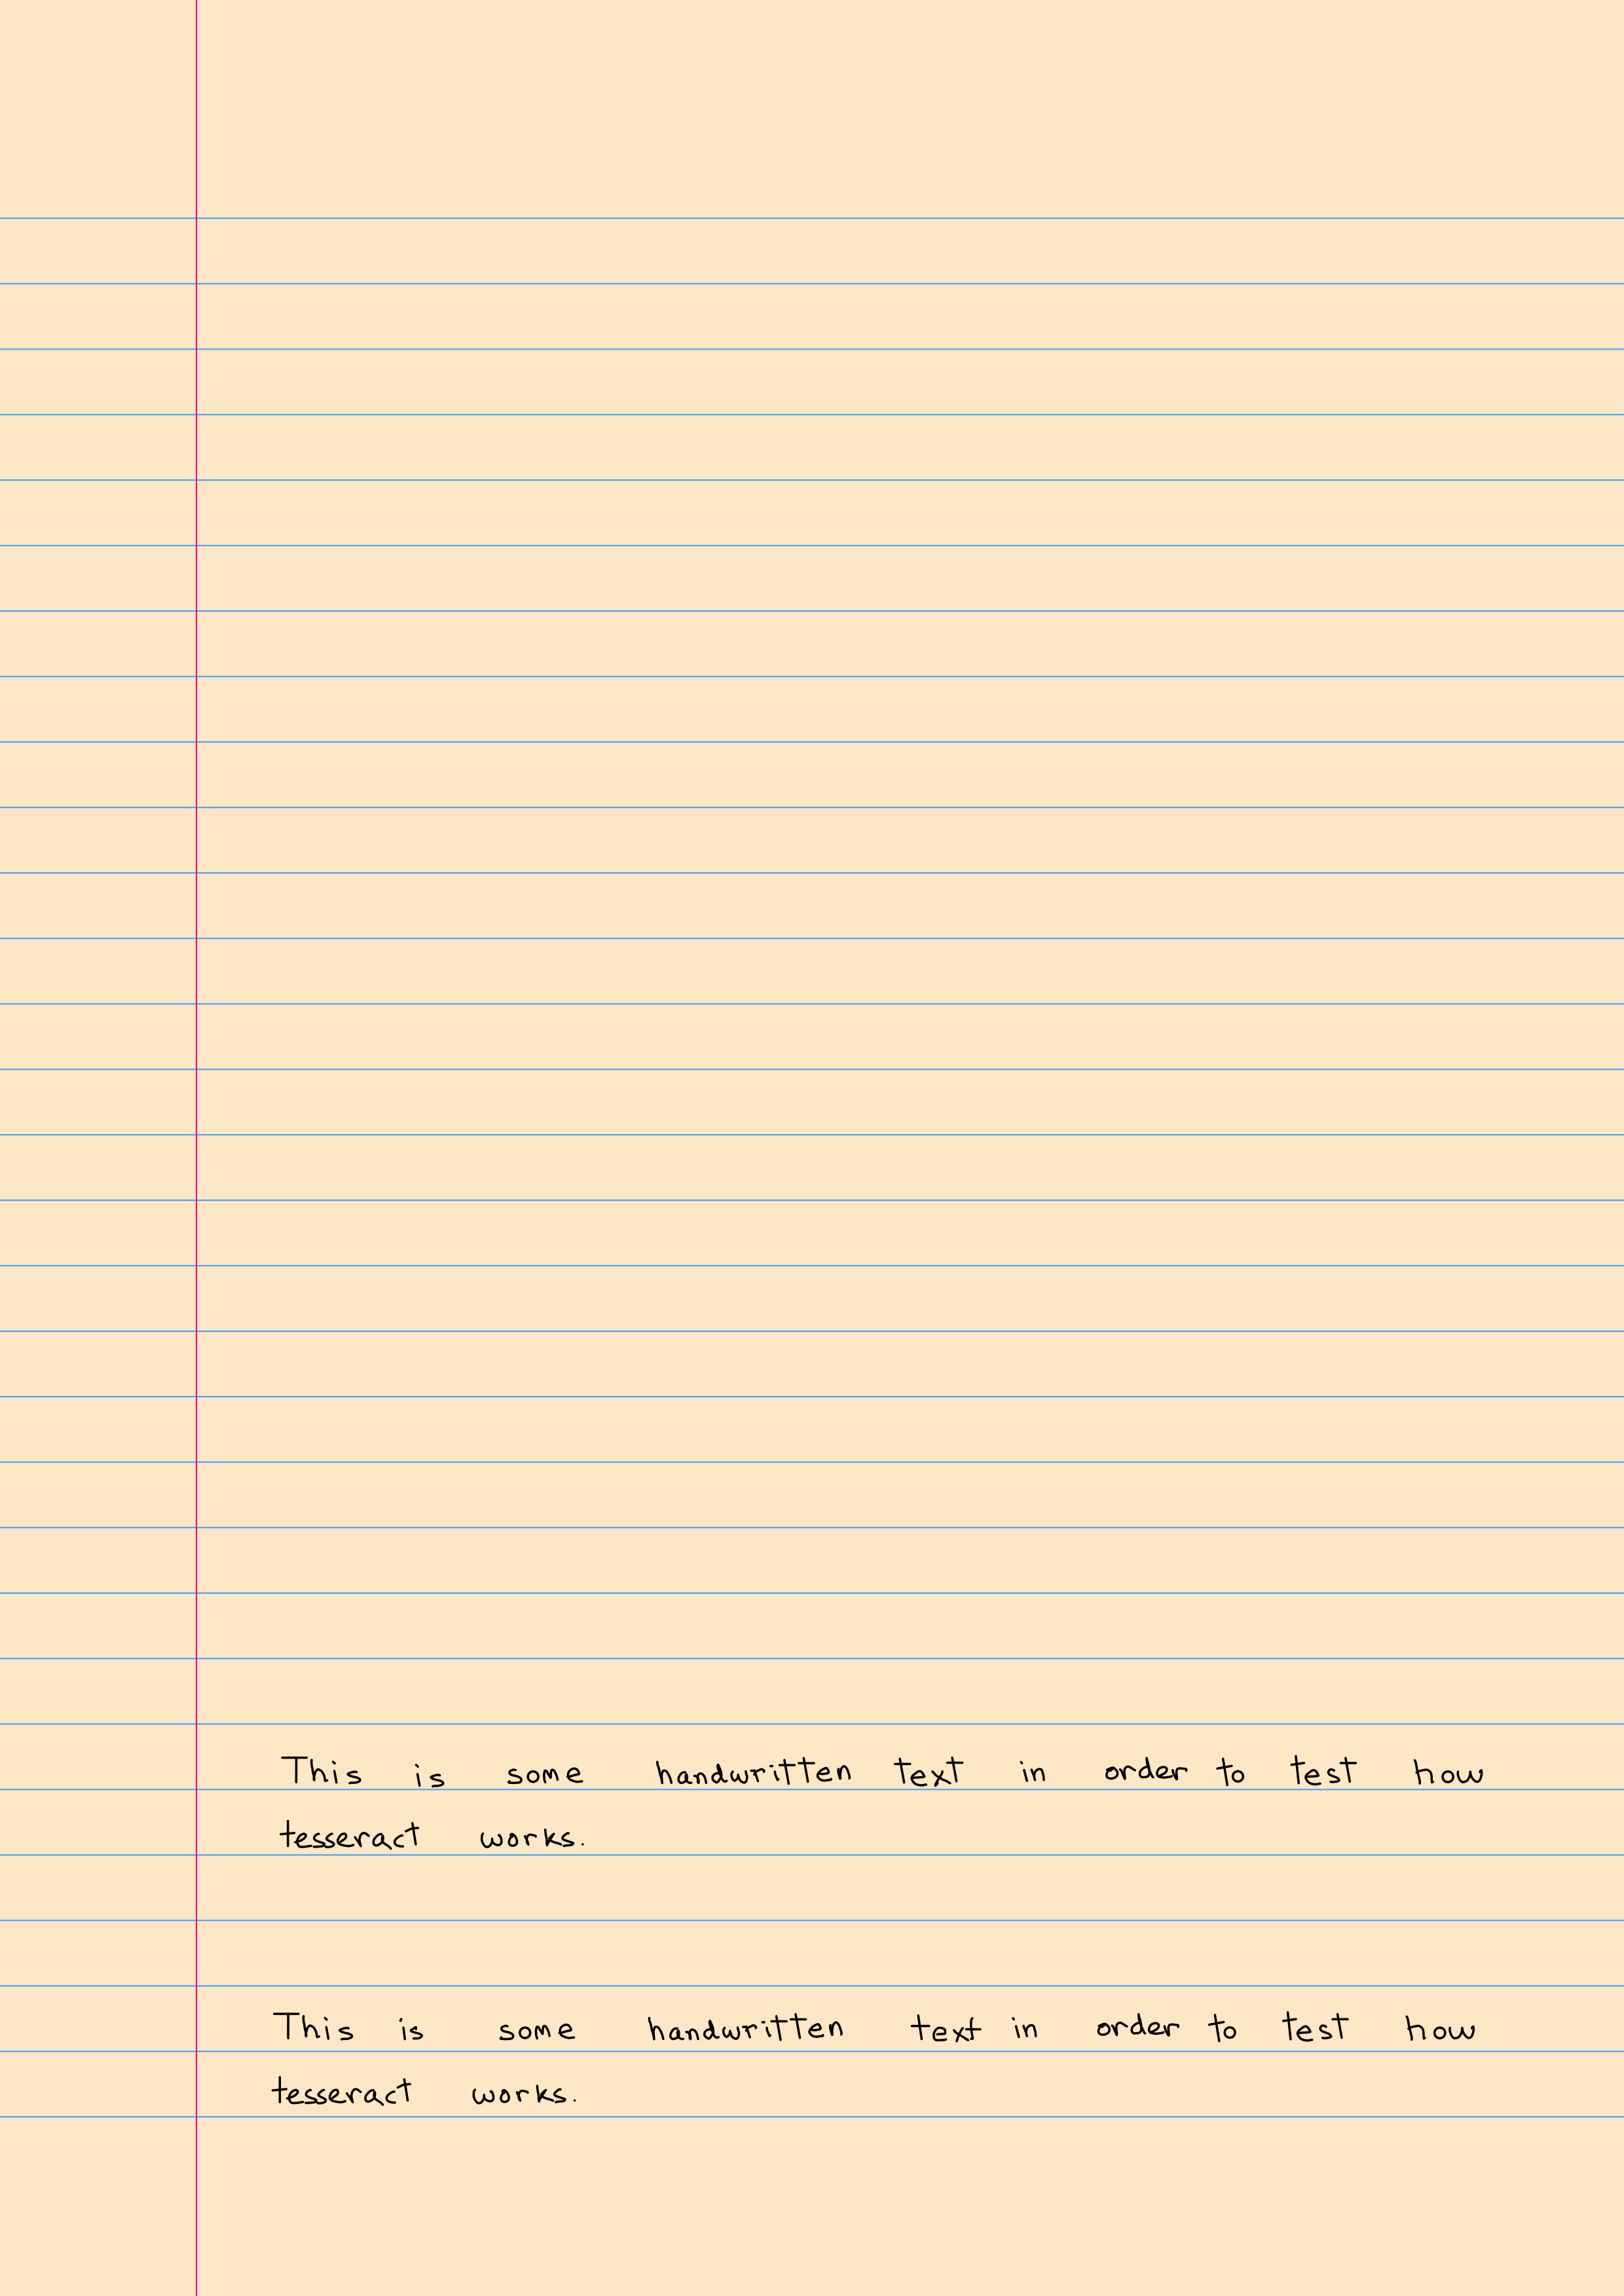 This is some handwritten text in order to test how
tesseract works.
This is some handwritten text in order to test how
tesseract works.